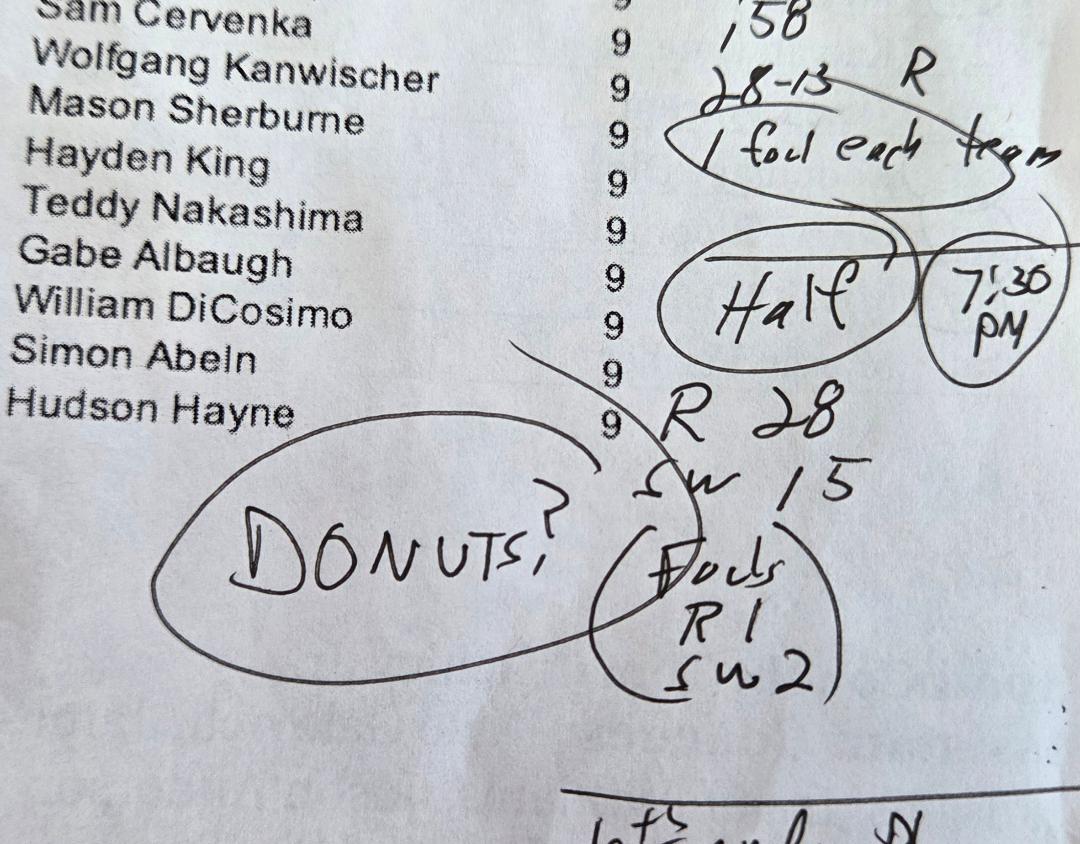 Sam Cervenka 9 ,58
Wolfgang Kanwischer 9 28-13 R
Mason Sherburne 9
Hayden King 9 1 foul each team
Teddy Nakashima 9
Gabe Albaugh 9
William DiCosimo 9 Half 7:30
Simon Abeln 9 PM
Hudson Hayne 9 R 28
SW 15
DONUTS?
Fouls
R 1
SW 2